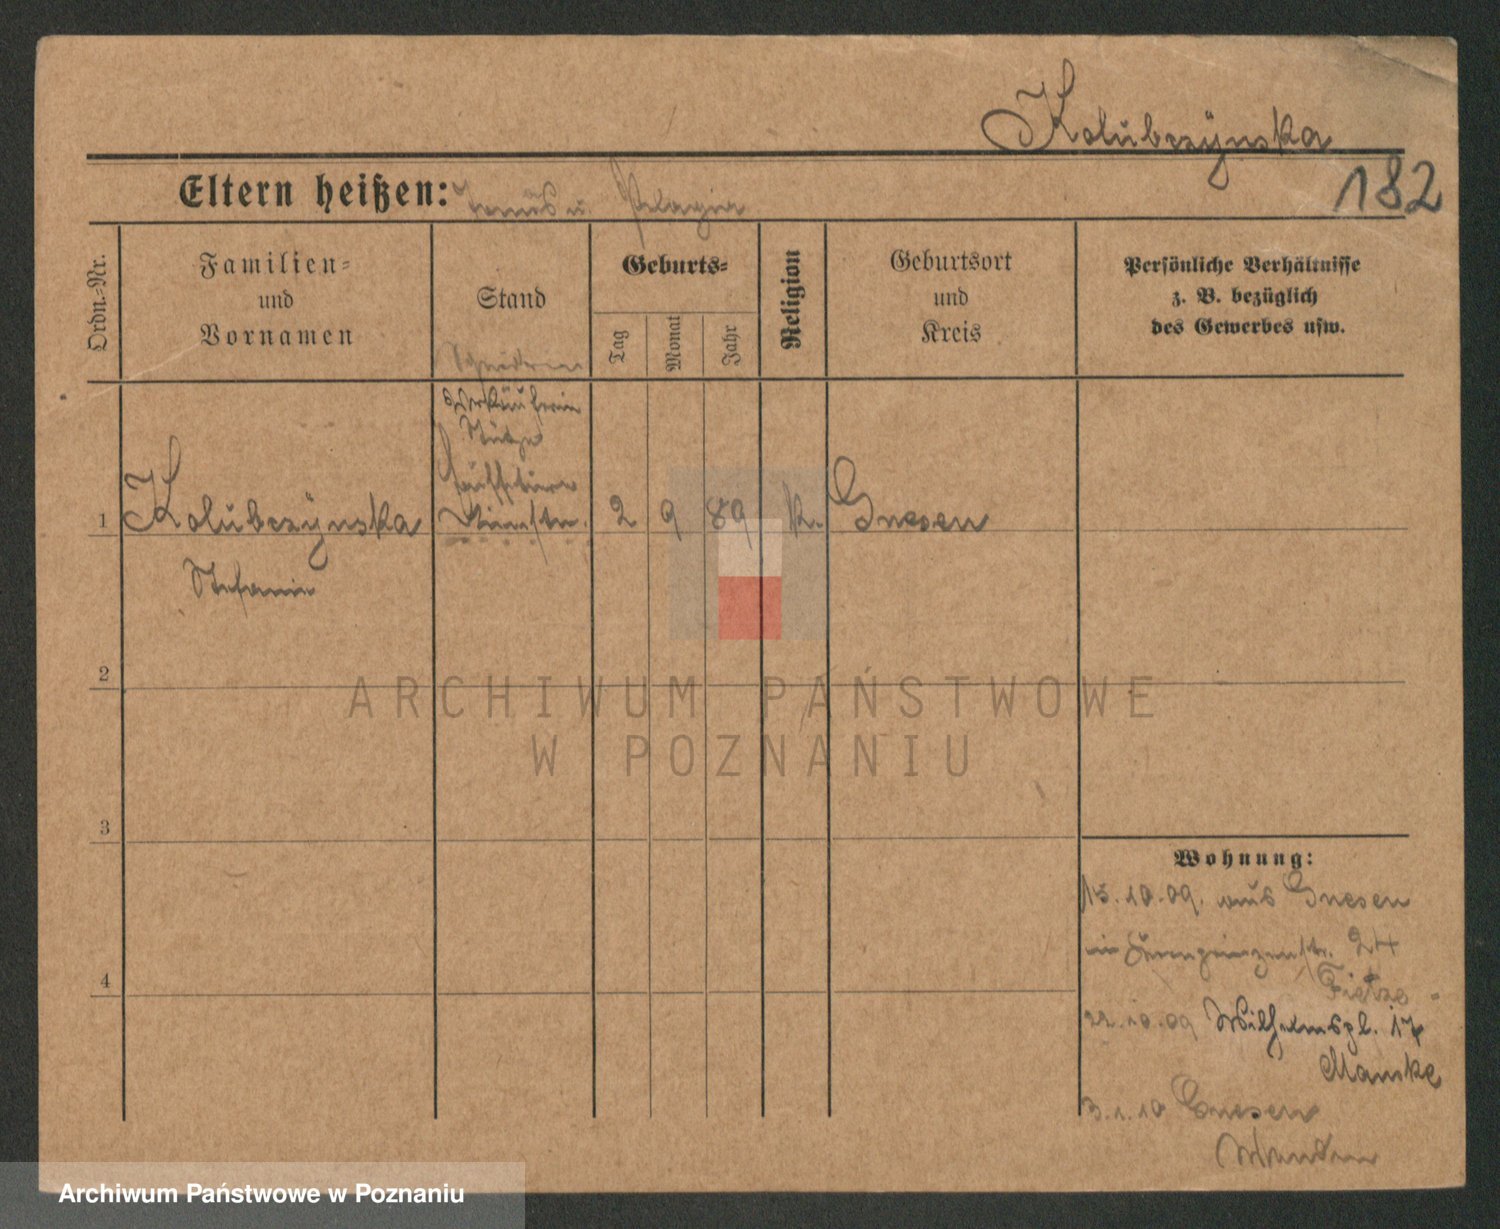 Kolubczÿnska
182
Eltern heißen: u Pelagia
Ordn.-Nr.
Familien-
und
Vornamen
Stand
Geburts-
Tag
Monat
Jahr
Religion
Geburtsort
und
Kreis
Persönliche Verhältnisse
z. B. bezüglich
des Gewerbes usw.
Verkäuferin
Stütze
1 Kolubczÿnska 2 9 89 k. Gnesen
Stefanie
2
3
4
Wohnung:
15.10.09. aus Gnesen
in Kronprinzenstr. 24
Fietze
22.10.09 Wilhelmspl. 17
Manske
3.1.10 Gnesen
ARCHIWUM PAŃSTWOWE
W POZNANIU
Archiwum Państwowe w Poznaniu